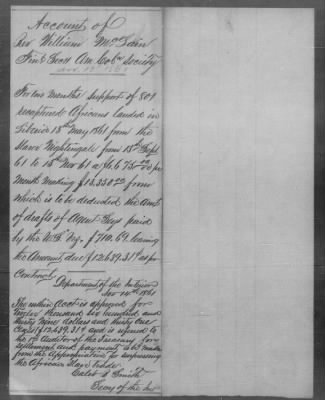 Account of
Rev William McLain
Fin'l Secy Am Col'n Society
Nov 15th 1861
For two months support of 801
recaptured Africans landed in
Liberia 15th May 1861 from the
Slaver Nightingale from 15th Sept
61 to 15 Nov 61 a $6,675 per
Month making $13,350 00 from
which is to be deducted the Amt
of drafts of Agent Seys paid
by the U.S. viz. $710.69. leaving
the Amount due $12,639.31 as per
Contract.
Department of the Interior
Nov 14th 1861
The within Acct is approved for
twelve thousand six hundred and
thirty nine dollars and thirty one
Cts ($12,639.31 and is referred to
the 1st Auditor of the Treasury for
settlement and payment to be made
from the Appropriation for suppressing
the African Slave trade.
Caleb B Smith
Secy of the Int